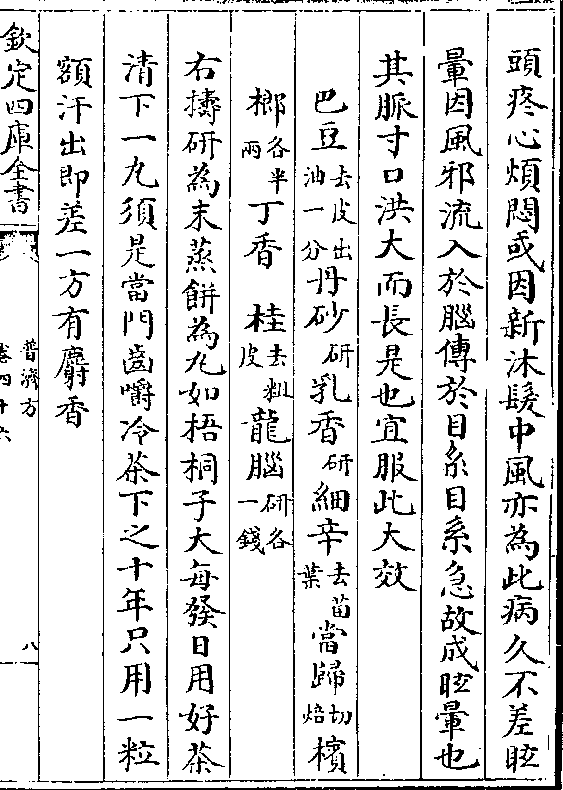 頭疼心煩悶或因新沐髮中風亦為此病久不差眩
暈因風邪流入於腦傳於目系目系急故成眩暈也
其脈寸口洪大而長是也宜服此大效
巴豆去皮出油一分丹砂研乳香研細辛去苗葉當歸切焙檳
榔各半兩丁香桂去粗皮龍腦研各一錢
右擣研為末蒸餅為丸如梧桐子大每發日用好茶
清下一丸須是當門齒嚼冷茶下之十年只用一粒
額汗出即差一方有麝香
欽定四庫全書
普濟方
卷四十六
八